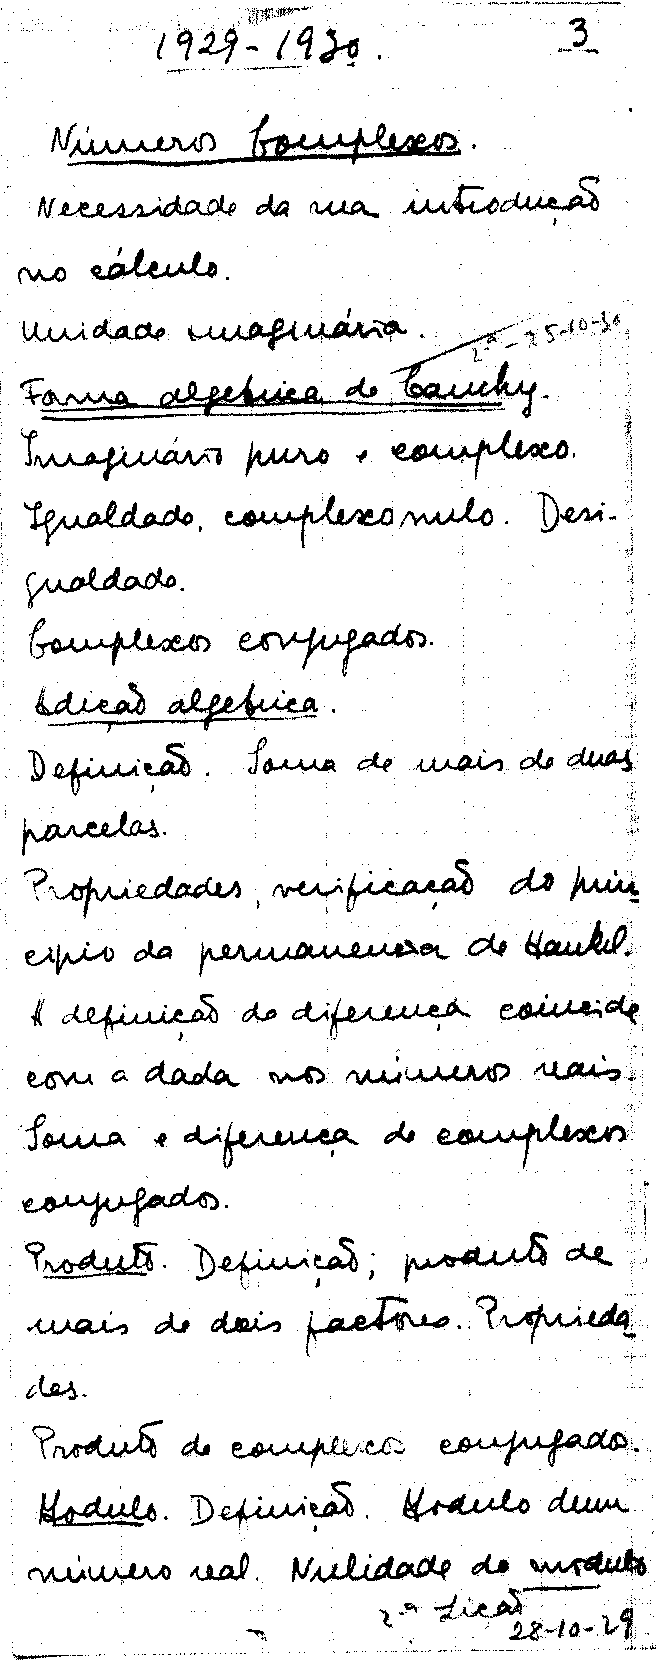 1929-1930.
3
Números Complexos.
Necessidade da sua introdução
no cálculo.
Unidade imaginária.
2ª - 25-10-30
Forma algebrica de Cauchy.
Imaginário puro e complexo.
Igualdade, complexo nulo. Desi-
gualdade.
Complexos conjugados.
Adição algebrica.
Definição. Soma de mais de duas
parcelas.
Propriedades, verificação do prin-
cipio da permanencia de Hankel.
A definição de diferença coincide
com a dada nos números reais.
Soma e diferença de complexos
conjugados.
Produto. Definição; produto de
mais de dois factores. Proprieda-
des.
Produto de complexos conjugados.
Modulo. Definição. Modulo dum
número real. Nulidade do modulo
2ª Lição
28-10-29